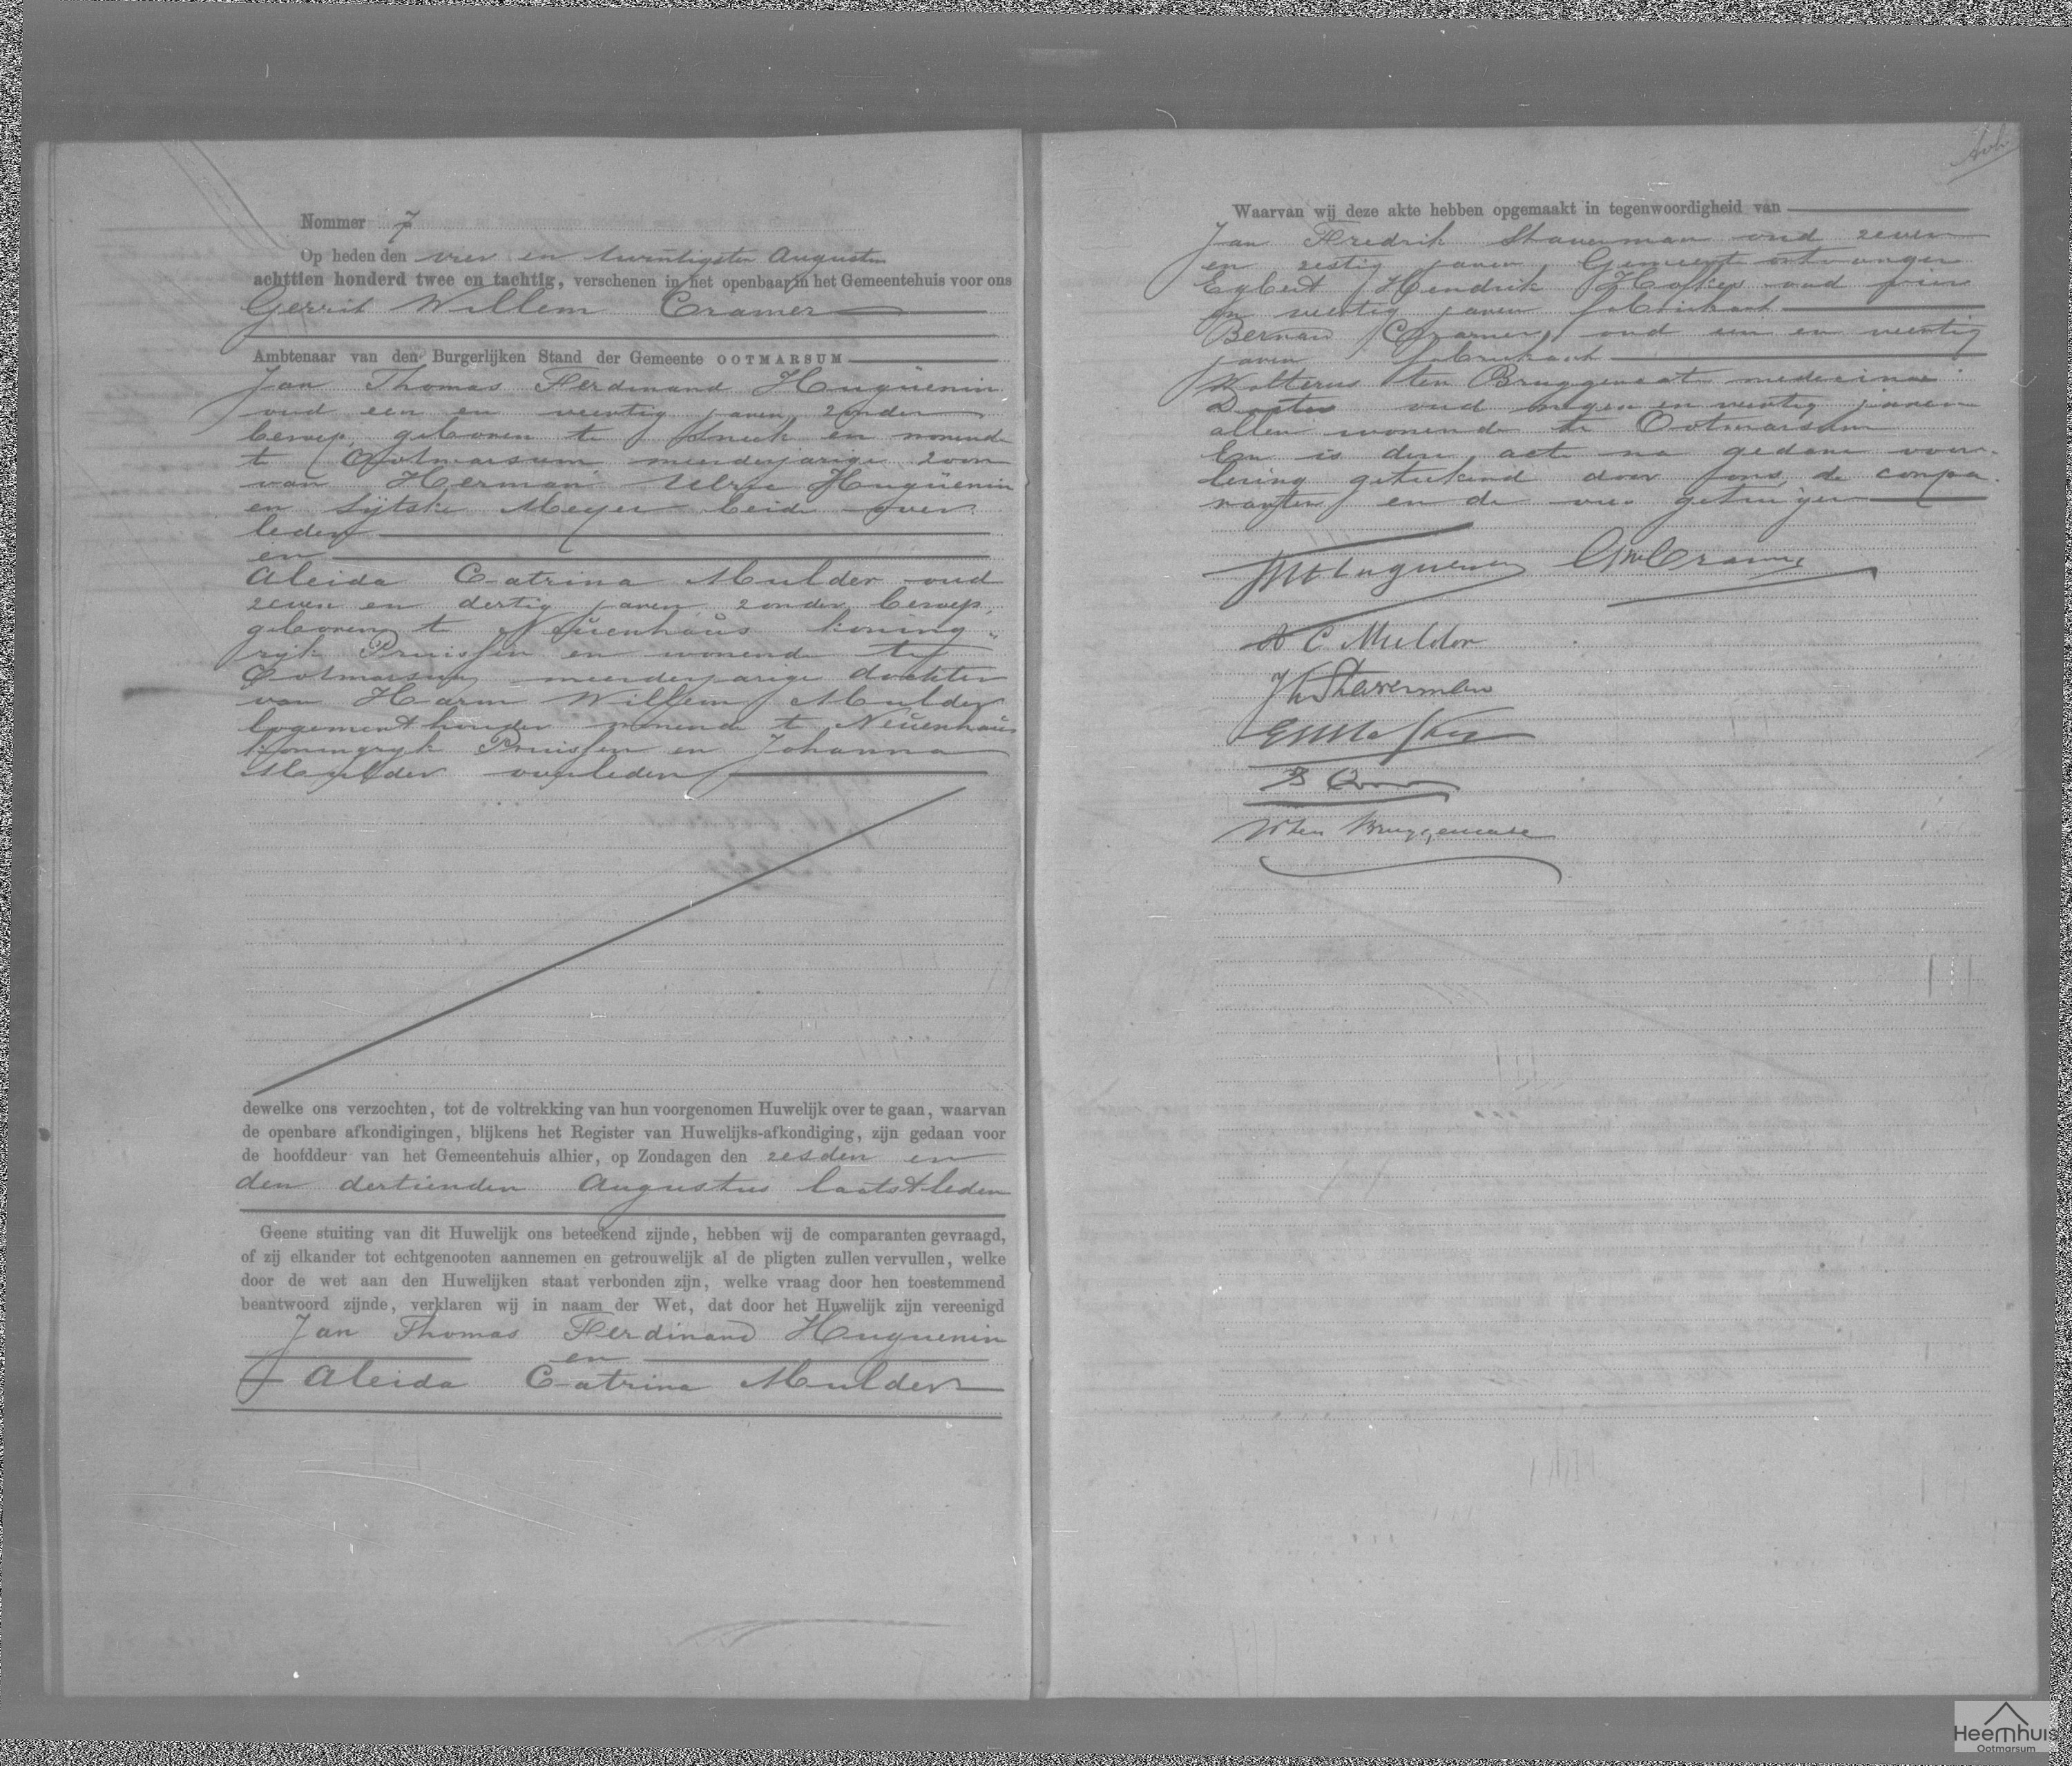 Nommer 7
Op heden den vier en twintigsten Augustus
achttien honderd twee en tachtig, verschenen in het openbaar in het Gemeentehuis voor ons
Gerrit Willem Cramer
Ambtenaar van den Burgerlijken Stand der Gemeente OOTMARSUM
Jan Thomas Ferdinand Hugüenin
oud een en veertig jaren, zonder
beroep, geboren te Sneek en wonende
te Ootmarsum meerderjarige zoon
van Herman Ulric Hugüenin
en Sijtske Meyer beide over
leden
en
Aleida Catrina Mulder oud
zeven en dertig jaren, zonder beroep,
geboren te Neuenhaus koning
rijk Pruissen en wonende te
Ootmarsum meerderjarige dochter
van Harm Willem Mulder
logementhouder wonende te Neuenhaus
koningryk Pruissen en Johanna
Mulder overleden
dewelke ons verzochten, tot de voltrekking van hun voorgenomen Huwelijk over te gaan, waarvan
de openbare afkondigingen, blijkens het Register van Huwelijks-afkondiging, zijn gedaan voor
de hoofddeur van het Gemeentehuis alhier, op Zondagen den zesden en
den dertienden Augustus laatstleden
Geene stuiting van dit Huwelijk ons beteekend zijnde, hebben wij de comparanten gevraagd,
of zij elkander tot echtgenooten aannemen en getrouwelijk al de pligten zullen vervullen, welke
door de wet aan den Huwelijken staat verbonden zijn, welke vraag door hen toestemmend
beantwoord zijnde, verklaren wij in naam der Wet, dat door het Huwelijk zijn vereenigd
Jan Thomas Ferdinand Huguenin
en
Aleida Catrina Mulder
Waarvan wij deze akte hebben opgemaakt in tegenwoordigheid van
Jan Fredrik Staverman oud zeven
en zestig jaren, Gemeente ontvanger
Egbert Hendrik Hofkes oud vier
en veertig jaren fabrikant
Bernard Cramer, oud een en veertig
jaren fabrikant
Wolterus ten Bruggencate medicinae
Doctor oud negen en veertig jaren
allen wonende te Ootmarsum
En is deze acte na gedane voor-
lezing geteekend door ons, de compa
ranten en de vier getuigen
GWCramer
A C Mulder
Staverman
EHHofkes
B
W ten Bruggencate
Heemhuis
Ootmarsum